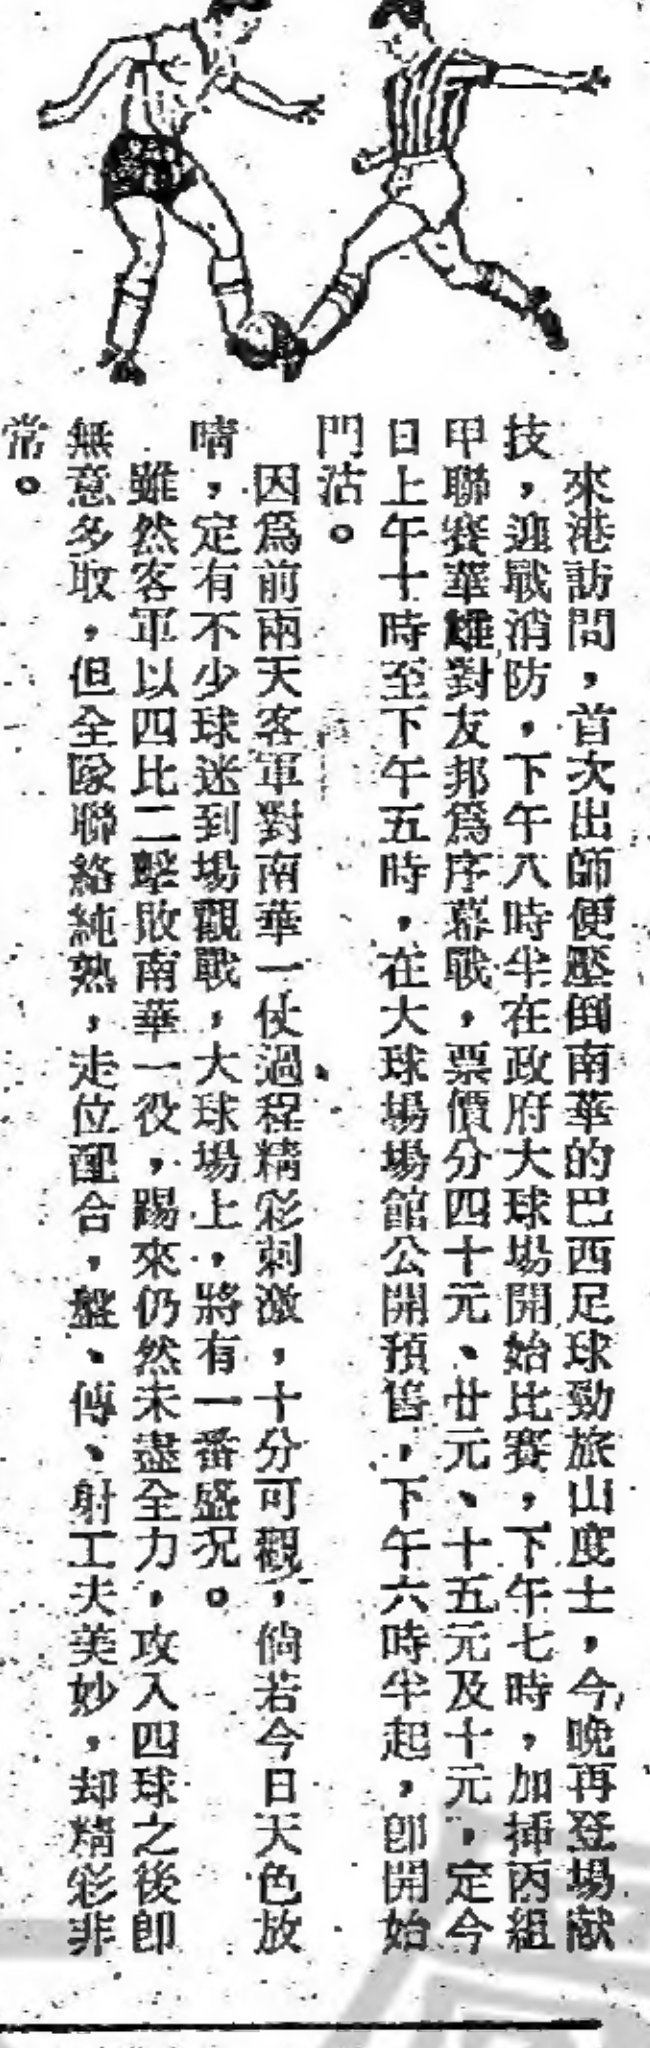 來港訪問，首次出師便壓倒南華的巴西足球勁旅山度士，今晚再登場献
技，迎戰消防，下午八時半在政府大球場開始比賽，下午七時，加揷丙組
甲聯賽華雄對友邦爲序幕戰，票價分四十元、廿元、十五元及十元，定今
日上午十時至下午五時，在大球場場館公開預售，下午六時半起，卽開始
門沽。
因爲前兩天客軍對南華一仗過程精彩刺激，十分可觀，倘若今日天色放
晴，定有不少球迷到場觀戰，大球場上，將有一番盛况。
雖然客軍以四比二擊敗南華一役，踢來仍然未盡全力，攻入四球之後卽
無意多取，但全隊聯絡純熟，走位配合，盤、傳、射工夫美妙，却精彩非
常。